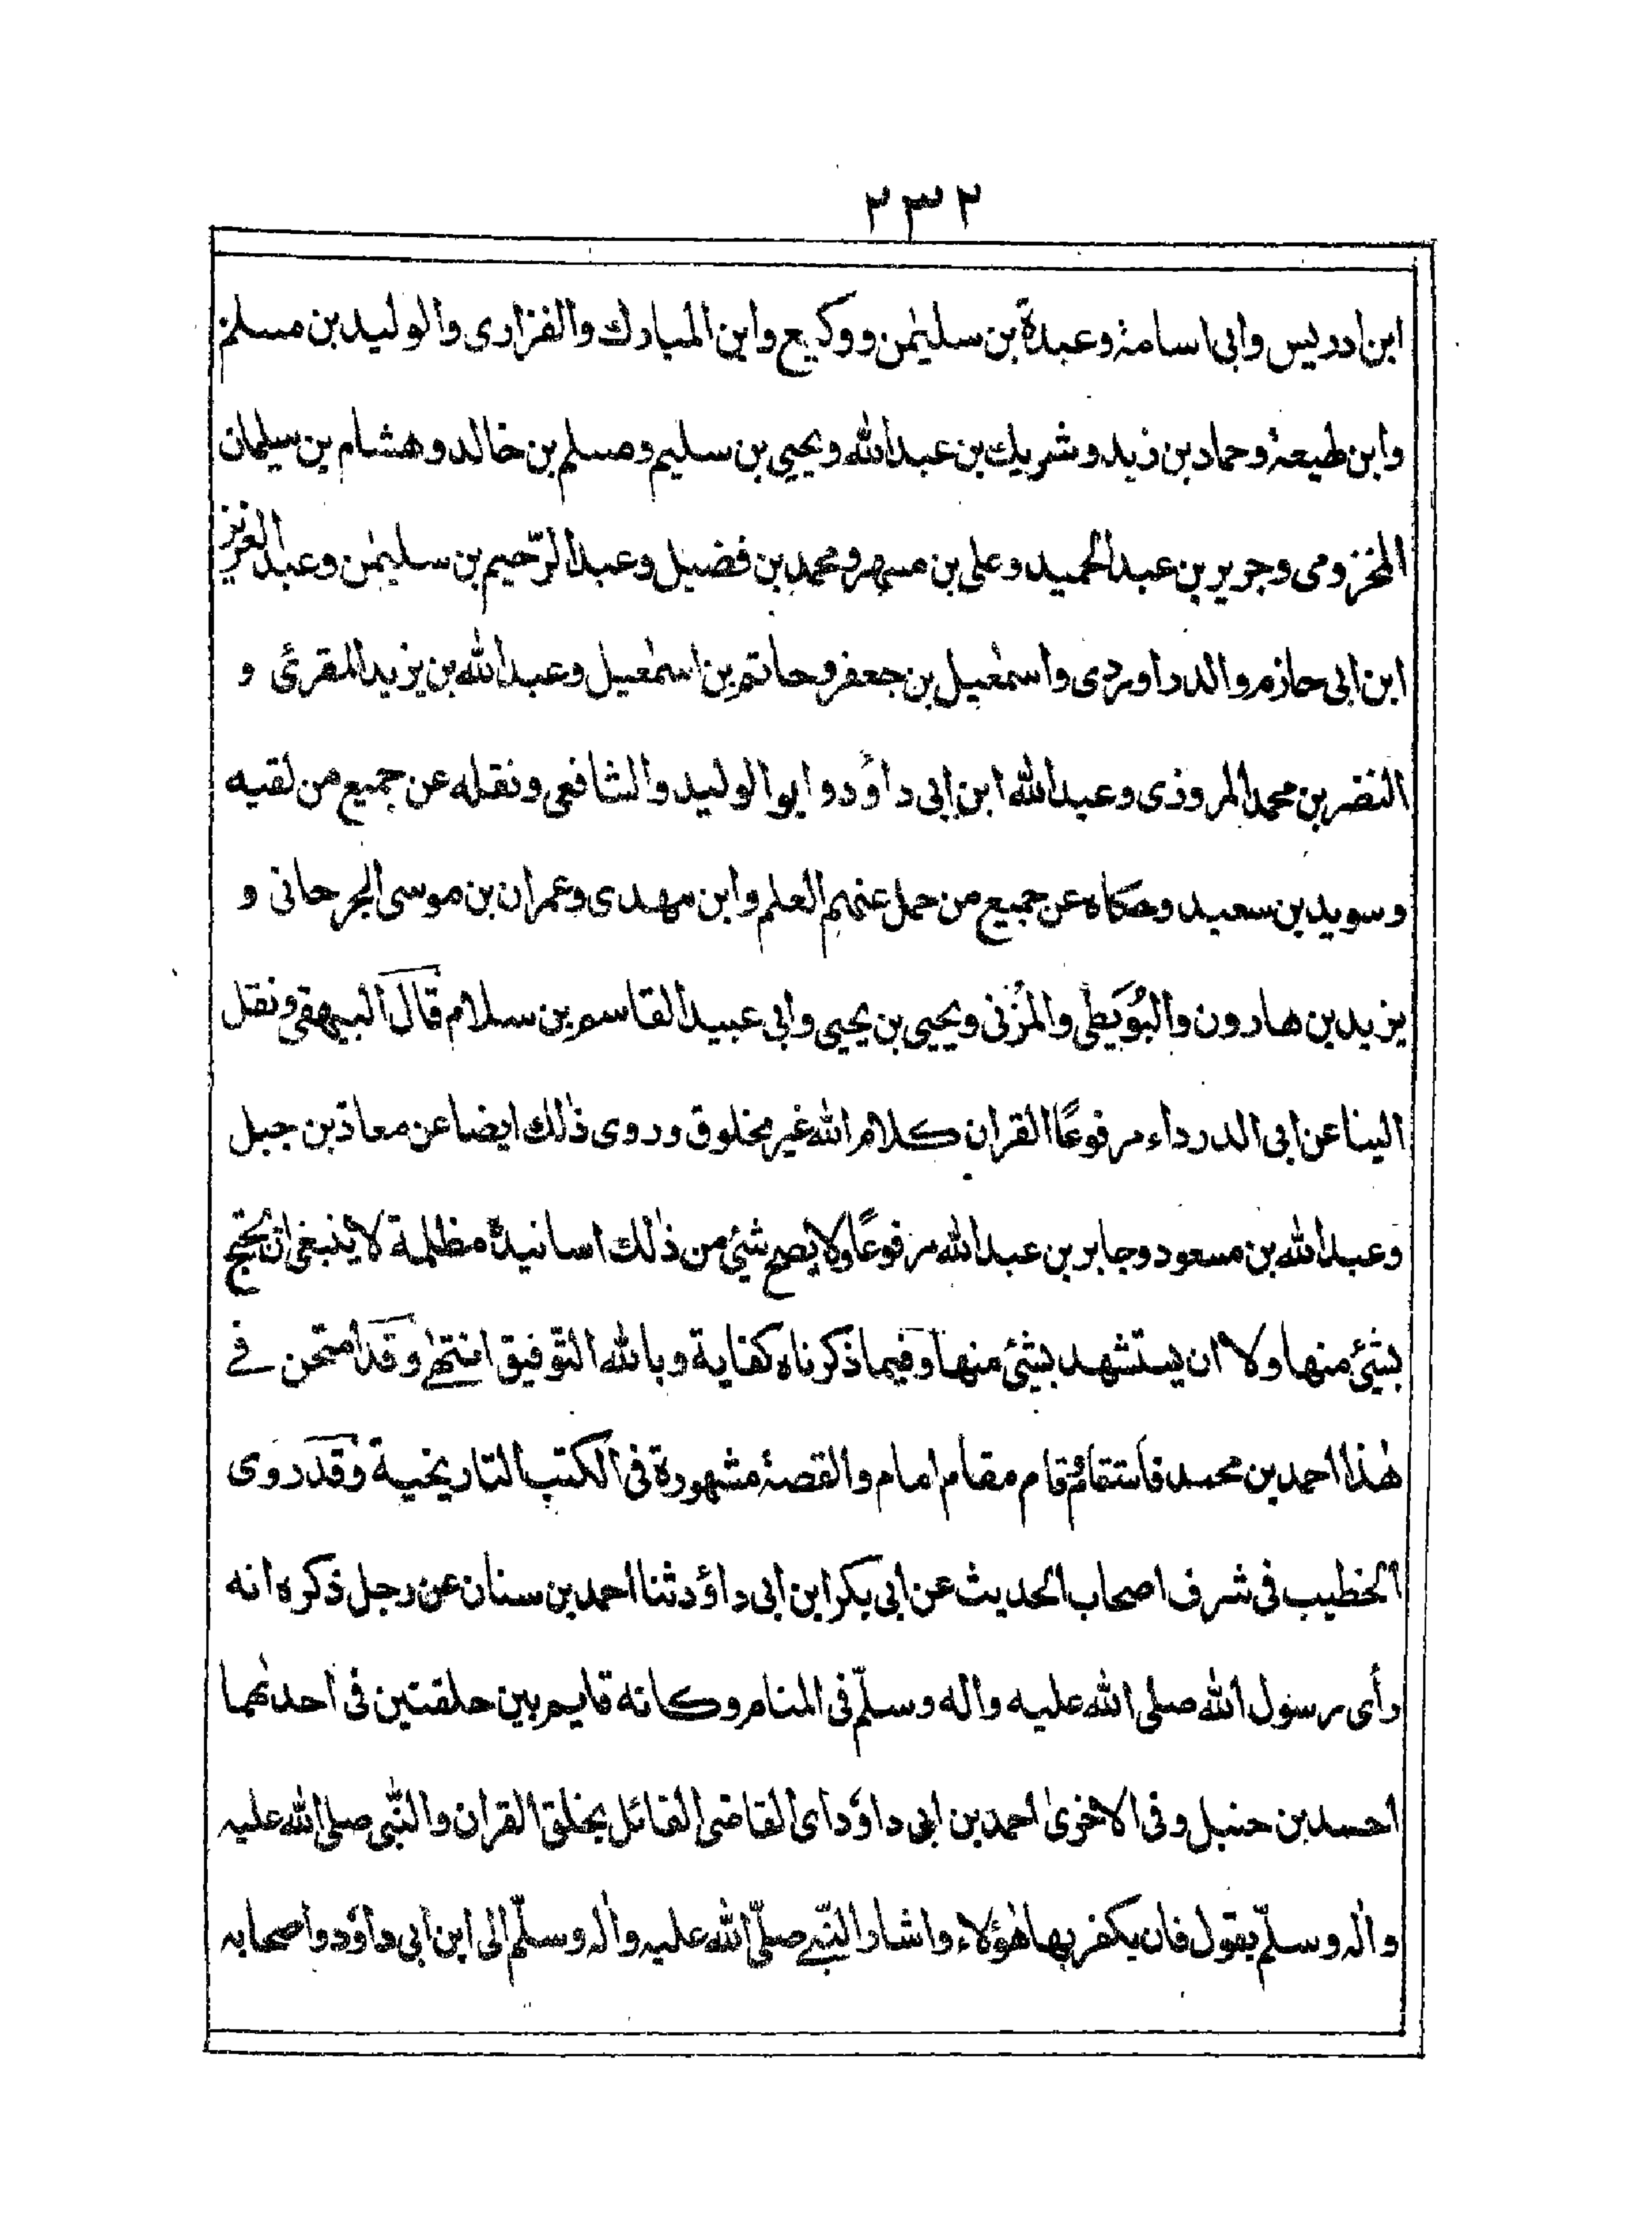 ٢٣٢
ابن ادريس وابى اسامة وعبدة بن سليمٰن ووكيع وابن المبارك والفزارى والوليد بن مسلم
وابن لهيعة وحماد بن زيد وشريك بن عبد الله ويحيى بن سليم ومسلم بن خالد وهشام بن سليمان
المخزومى وجرير بن عبد الحميد وعلى بن مسهر ومحمد بن فضيل وعبد الرّحيم بن سليمٰن وعبد العزيز
ابن ابى حازم والدراوردى واسمٰعيل بن جعفر وحاتم بن اسمٰعيل وعبد الله بن يزيد المقرئ و
النضر بن محمد المروزى وعبد الله ابن ابى داؤد وابو الوليد والشافعى ونقله عن جميع من لقيه
وسويد بن سعيد وحكاه عن جميع من حمل عنهم العلم وابن مهدى وعمران بن موسى الجرجانى و
يزيد بن هارون والبُوَيطى والمُزنى ويحيى بن يحيى وابى عبيد القاسم بن سلام قال البيهقى ونقل
الينا عن ابى الدرداء مرفوعًا القران كلام الله غير مخلوق وروى ذٰلك ايضا عن معاذ بن جبل
وعبد الله بن مسعود وجابر بن عبد الله مرفوعًا ولا يصح شئ من ذٰلك اسانيده مظلمة لا ينبغى ان يحتج
بشئ منها ولا ان يستشهد بشئ منها وفيما ذكرناه كفاية وبالله التّوفيق انتهٰى وقد امتحن فے
هٰذا احمد بن محمد فاستقام وقام مقام امام والقصة مشهورة فى الكتب التاريخية وقد روى
الخطيب فى شرف اصحاب الحديث عن ابى بكر ابن ابى داؤد ثنا احمد بن سنان عن رجل ذكره انه
رأى رسول الله صلى الله عليه واله وسلّم فى المنام وكانه قايم بين حلقتين فى احدٰهما
احمد بن حنبل وفى الاخرىٰ احمد بن ابى داؤد اى القاضى القائل بخلق القران والنّبى صلى الله عليه
واٰله وسلّم يقول فان يكفر بها هٰؤلاء واشار النّبے صلّى الله عليه واٰله وسلّم الى ابن ابى داؤد واصحابه